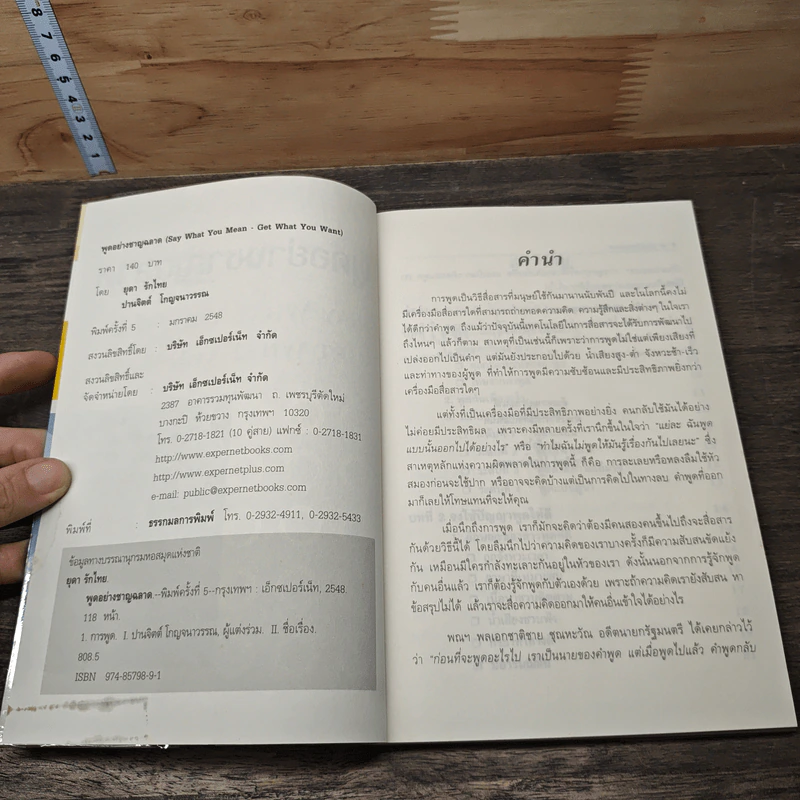 8
7
6
5
4
3
2
1
พูดอย่างชาญฉลาด (Say What You Mean - Get What You Want)
ราคา 140 บาท
โดย ยุดา รักไทย
ปานจิตต์ โกญจนาวรรณ
พิมพ์ครั้งที่ 5 : มกราคม 2548
สงวนลิขสิทธิ์โดย : บริษัท เอ็กซเปอร์เน็ท จำกัด
สงวนลิขสิทธิ์และ
จัดจำหน่ายโดย : บริษัท เอ็กซเปอร์เน็ท จำกัด
2387 อาคารรวมทุนพัฒนา ถ. เพชรบุรีตัดใหม่
บางกะปิ ห้วยขวาง กรุงเทพฯ 10320
โทร. 0-2718-1821 (10 คู่สาย) แฟกซ์ : 0-2718-1831
http://www.expernetbooks.com
http://www.expernetplus.com
e-mail: public@expernetbooks.com
พิมพ์ที่ : ธรรกมลการพิมพ์ โทร. 0-2932-4911, 0-2932-5433
ข้อมูลทางบรรณานุกรมหอสมุดแห่งชาติ
ยุดา รักไทย.
พูดอย่างชาญฉลาด.--พิมพ์ครั้งที่ 5--กรุงเทพฯ : เอ็กซเปอร์เน็ท, 2548.
118 หน้า.
1. การพูด. I. ปานจิตต์ โกญจนาวรรณ, ผู้แต่งร่วม. II. ชื่อเรื่อง.
808.5
ISBN 974-85798-9-1
คำนำ
การพูดเป็นวิธีสื่อสารที่มนุษย์ใช้กันมานานนับพันปี และในโลกนี้คงไม่
มีเครื่องมือสื่อสารใดที่สามารถถ่ายทอดความคิด ความรู้สึกและสิ่งต่างๆ ในใจเรา
ได้ดีกว่าคำพูด ถึงแม้ว่าปัจจุบันนี้เทคโนโลยีในการสื่อสารจะได้รับการพัฒนาไป
ถึงไหนๆ แล้วก็ตาม สาเหตุที่เป็นเช่นนี้ก็เพราะว่าการพูดไม่ใช่แต่เพียงเสียงที่
เปล่งออกไปเป็นคำๆ แต่มันยังประกอบไปด้วย น้ำเสียงสูง-ต่ำ จังหวะช้า-เร็ว
และท่าทางของผู้พูด ที่ทำให้การพูดมีความซับซ้อนและมีประสิทธิภาพยิ่งกว่า
เครื่องมือสื่อสารใดๆ
แต่ทั้งที่เป็นเครื่องมือที่มีประสิทธิภาพอย่างยิ่ง คนกลับใช้มันได้อย่าง
ไม่ค่อยมีประสิทธิผล เพราะคงมีหลายครั้งที่เรานึกขึ้นในใจว่า "แย่ละ ฉันพูด
แบบนั้นออกไปได้อย่างไร" หรือ "ทำไมฉันไม่พูดให้มันรู้เรื่องกันไปเลยนะ" ซึ่ง
สาเหตุหลักแห่งความผิดพลาดในการพูดนี้ ก็คือ การละเลยหรือหลงลืมใช้หัว
สมองก่อนจะใช้ปาก หรืออาจจะคิดบ้างแต่เป็นการคิดไปในทางลบ คำพูดที่ออก
มาก็เลยให้โทษแทนที่จะให้คุณ
เมื่อนึกถึงการพูด เราก็มักจะคิดว่าต้องมีคนสองคนขึ้นไปถึงจะสื่อสาร
กันด้วยวิธีนี้ได้ โดยลืมนึกไปว่าความคิดของเราบางครั้งก็มีความสับสนขัดแย้ง
กัน เหมือนมีใครกำลังทะเลาะกันอยู่ในหัวของเรา ดังนั้นนอกจากการรู้จักพูด
กับคนอื่นแล้ว เราก็ต้องรู้จักพูดกับตัวเองด้วย เพราะถ้าความคิดเรายังสับสน หา
ข้อสรุปไม่ได้ แล้วเราจะสื่อความคิดออกมาให้คนอื่นเข้าใจได้อย่างไร
พณฯ พลเอกชาติชาย ชุณหะวัณ อดีตนายกรัฐมนตรี ได้เคยกล่าวไว้
ว่า "ก่อนที่จะพูดอะไรไป เราเป็นนายของคำพูด แต่เมื่อพูดไปแล้ว คำพูดกลับ